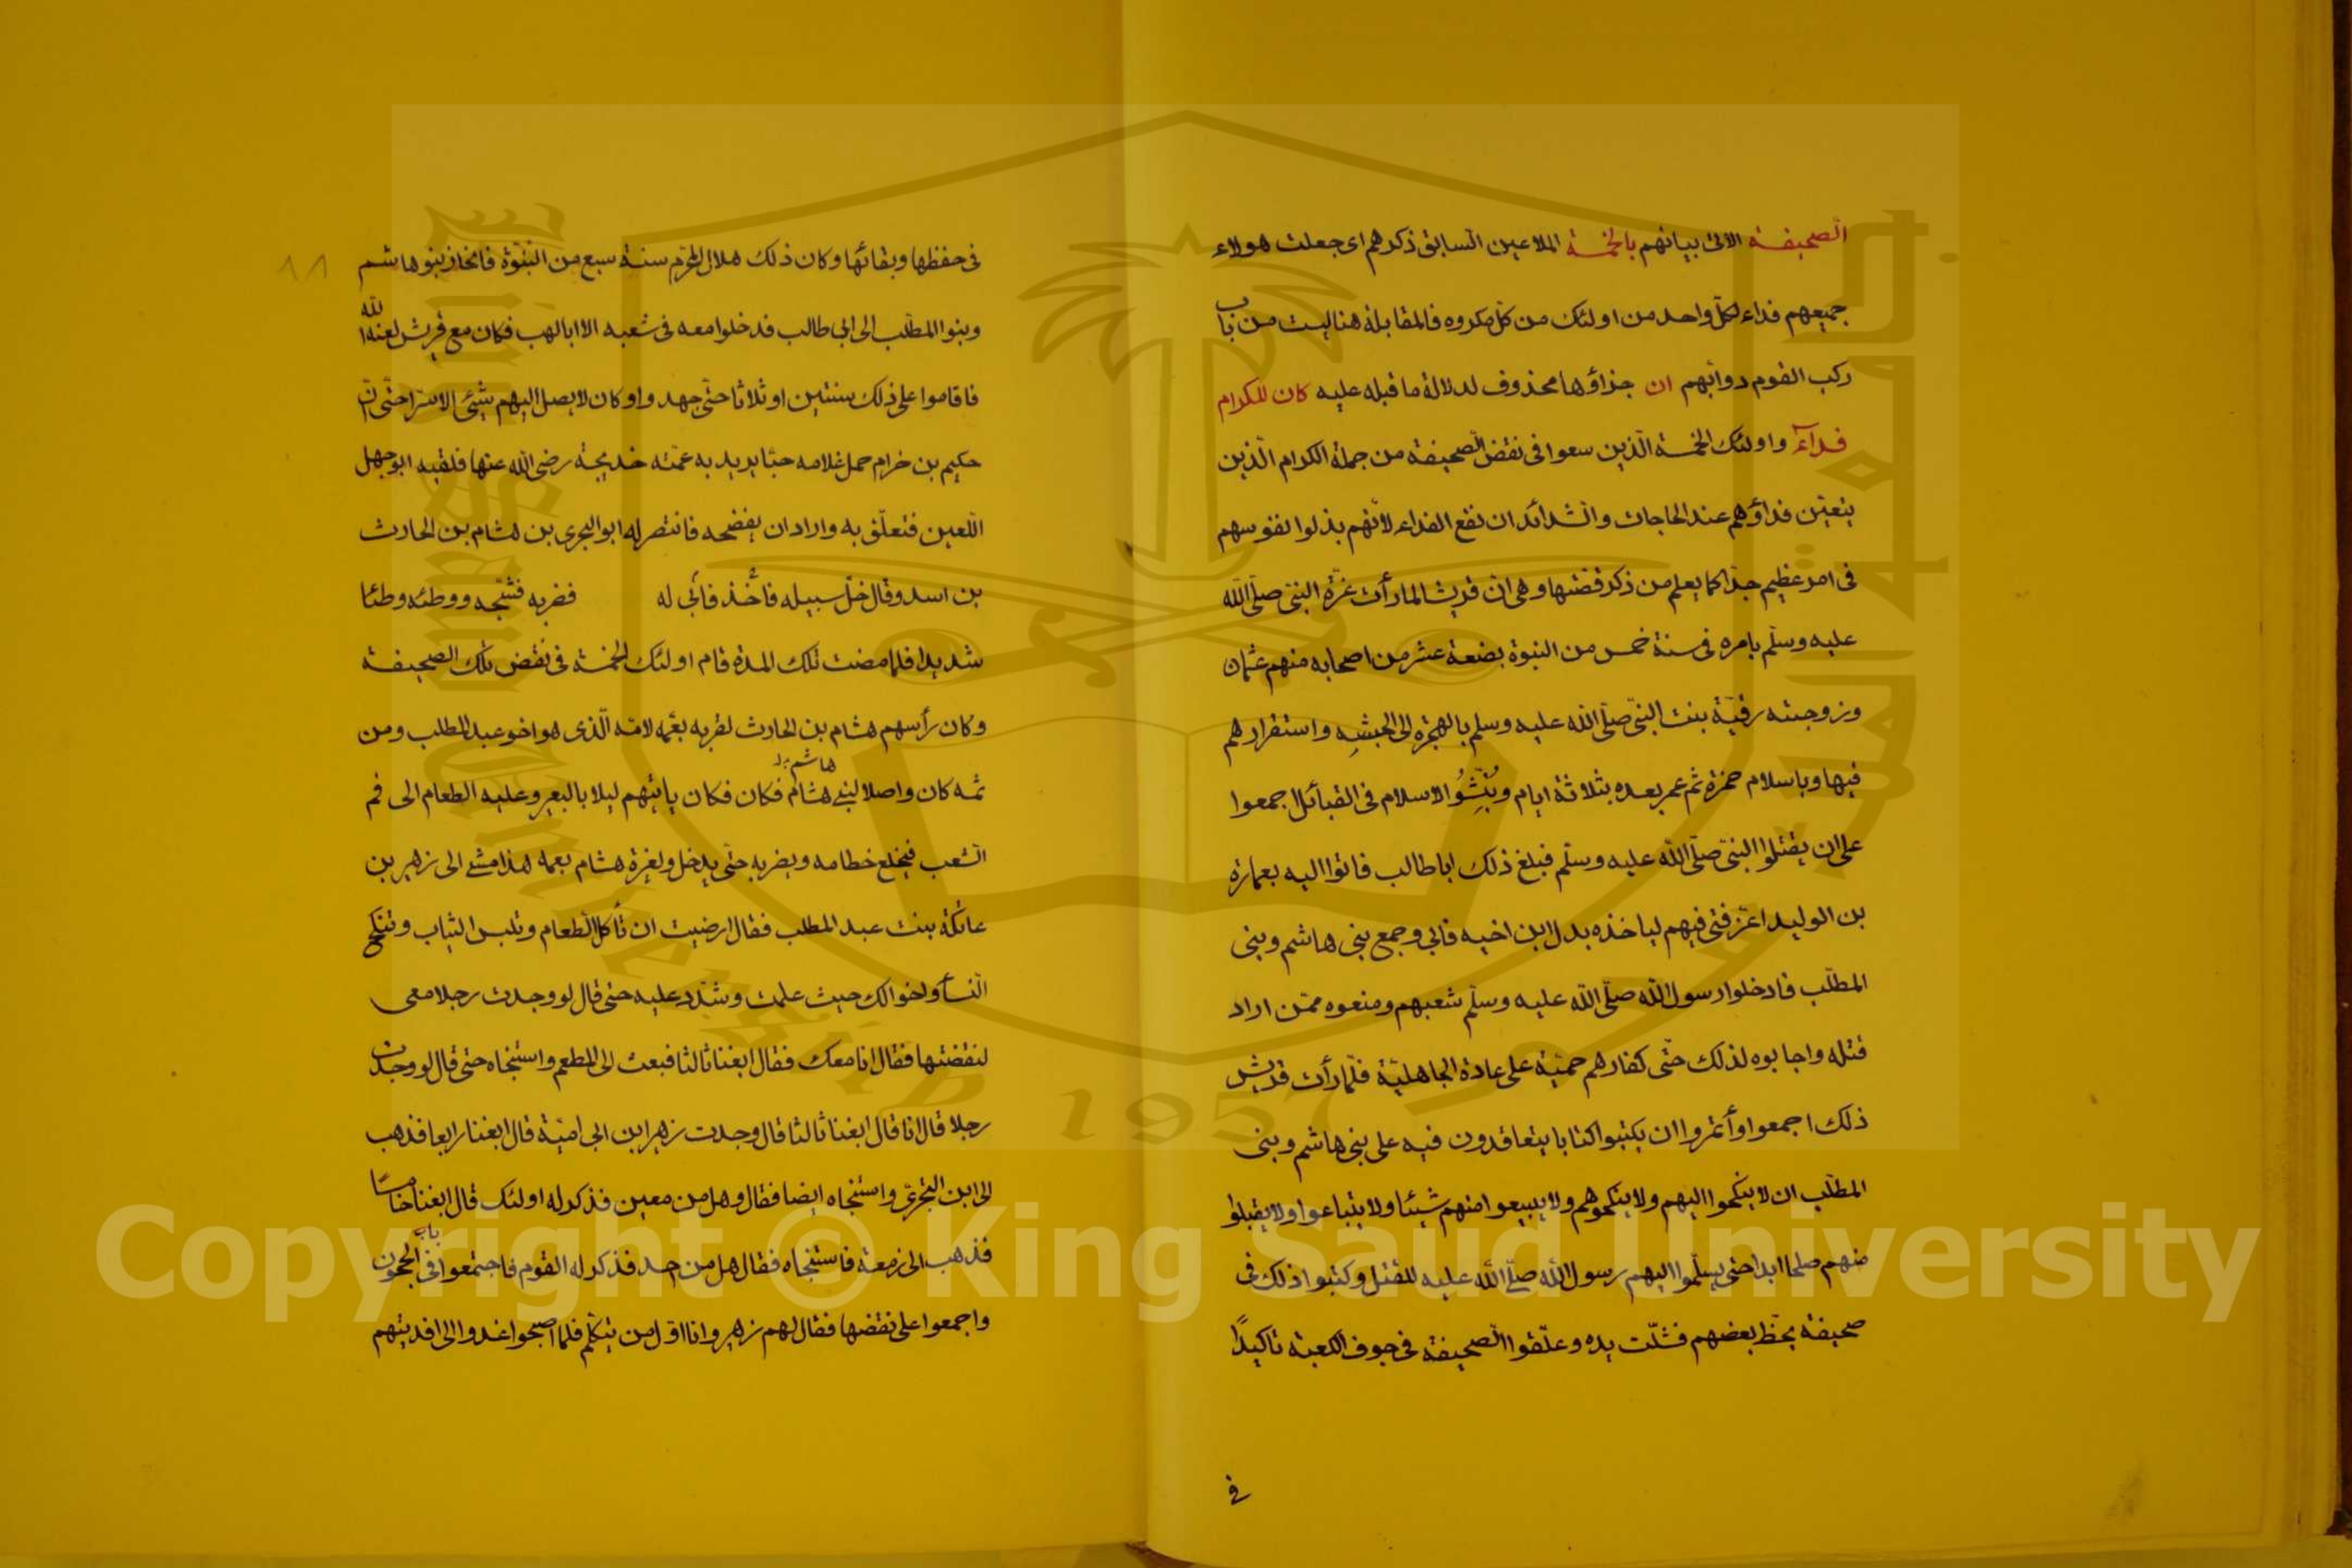 الصحيفة الاتى بيانهم بالخمسة الملاعين السابق ذكرهم اى جعلت هولاء
جميعهم فداء لكل واحد من اولئك من كل مكروه فالمقابلة هنا ليست من باب
ركب القوم دوابهم ان جزاؤها محذوف لدلالة ما قبله عليه كان للكرام
فداء واولئك الخمسة الذين سعوا فى نقض الصحيفة من جملة الكرام الذين
يتعين فداؤهم عند الحاجات والشدائد ان نفع الفداء لانهم بذلوا نفوسهم
فى امر عظيم جدا كما يعلم من ذكر قصتها وهى ان قريشا لما رأت عزة النبى صلى الله
عليه وسلم بامره فى سنة خمس من النبوة بضعة عشر من اصحابه منهم عثمان
وزوجته رقية بنت النبى صلى الله عليه وسلم بالهجرة الى الحبشة واستقرارهم
فيها وباسلام حمزة ثم عمر بعده بثلاثة ايام وبُشُوُ الاسلام فى القبائل اجمعوا
على ان يقتلوا النبى صلى الله عليه وسلم فبلغ ذلك ابا طالب فاتوا اليه بعمارة
بن الوليد اعز فتى فيهم لياخذه بدل ابن اخيه فابى وجمع بنى هاشم وبنى
المطلب فادخلوا رسول الله صلى الله عليه وسلم شعبهم ومنعوه ممن اراد
قتله واجابوه لذلك حتى كفارهم حمية على عادة الجاهلية فلما رأت قريش
ذلك اجمعوا وأتمروا ان يكتبوا كتابا يتعاقدون فيه على بنى هاشم وبنى
المطلب ان لا ينكحوا اليهم ولا ينكحوهم ولا يبيعوا منهم شيئا ولا يتباعوا ولا يقبلوا
منهم صلحا ابدا حتى يسلموا اليهم رسول الله صلى الله عليه للقتل وكتبوا ذلك فى
صحيفة بخط بعضهم فشلت يده وعلقوا الصحيفة فى جوف الكعبة تاكيدًا
فى
٨٨
فى حفظها وبقائها وكان ذلك هلال المحرم سنة سبع من النبوة فانحاز بنو هاشم
وبنوا المطلب الى ابى طالب فدخلوا معه فى شعبه الا ابا لهب فكان مع قريش لعنه الله
فاقاموا على ذلك سنتين او ثلاثا حتى جهدوا وكان لا يصل اليهم شيئ الا سرا حتى ان
حكيم بن خرام حمل غلامه حبا يريد به عمته خديجة رضى الله عنها فلقيه ابو جهل
اللعين فتعلق به واراد ان يفضحه فانتصر له ابو البحرى بن هشام بن الحارث
بن اسد وقال خل سبيله فاخذ فابى له فضربه فشجه ووطئه وطئا
شديدا فلما مضت تلك المدة قام اولئك الخمسة فى نقض تلك الصحيفة
وكان رأسهم هشام بن الحارث لقربه بعمه لامه الذى هو اخو عبد المطلب ومن
ثمه كان واصلا لبنى هشام هاشم فكان فكان يأتيهم ليلا بالبعير وعليه الطعام الى فم
الشعب فيخلع خطامه ويضربه حتى يدخل ولغزة هشام بعمه هذا مشى الى زهير بن
عاتكة بنت عبد المطلب فقال ارضيت ان تأكل الطعام وتلبس الثياب وتنكح
النسأ واخوالك حيث علمت وشدد عليه حتى قال لو وجدت رجلا معى
لنقضتها فقال انا معك فقال ابغنا ثالثا فبعث الى المطعم واستنجاه حتى قال لو وجدت
رجلا قال انا قال ابغنا ثالثا قال وجدت زهير ابن ابى امية قال ابغنا رابعا فذهب
الى ابن البحرى واستنجاه ايضا فقال وهل من معين فذكر له اولئك قال ابغنا خامسًا
فذهب الى زمعة فاستنجاه فقال هل من احد فذكر له القوم فاجتمعوا فى باب الحجون
واجمعوا على نقضها فقال لهم زهير وانا اول من يتكلم فلما اصبحوا غدوا الى افديتهم
King Saud University
1957
Copyright © King Saud University